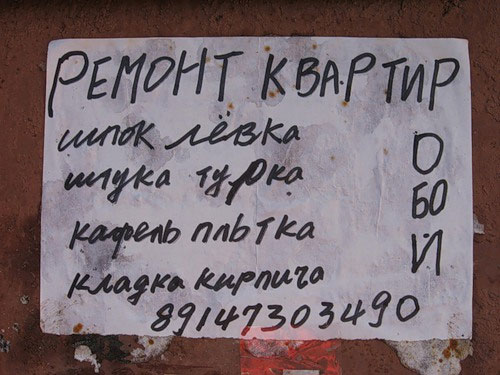 РЕМОНТ КВАРТИР
шпок лёвка
штука турка
кафель плътка
кладка кирпича
89147303490
О
БО
И